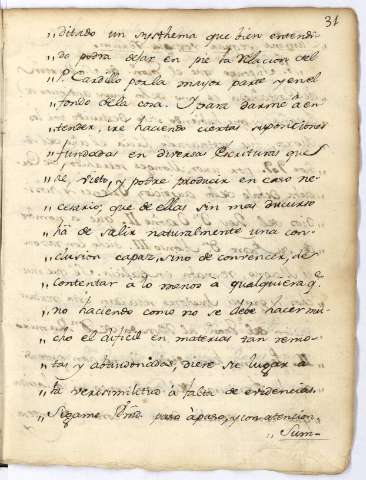 31
„ ditado un systhema que bien entendi-
„ do podra dejar en pie la Relacion del
„ P. Cardillo por la mayor parte y en el
„ fondo dela cosa. I para darme à en-
„ tender, ire haciendo ciertas suposiciones
„ fundadas en diversas Escrituras que
„ he visto, y podre producir en caso ne-
„ cesario, que de ellas sin mas discurso
„ hã de salir naturalmente una con-
„ clusion capaz, sino de convencer, de
„ contentar a lo menos a qualquiera q.e
„ no haciendo como no se debe hacer mu-
„ cho el dificil en materias tan remo-
„ tas y abandonadas, diere su lugar à
„ la verisimilitud à falta de evidencias.
„ Sigame paso à paso, y con atencion.
„ Sum-